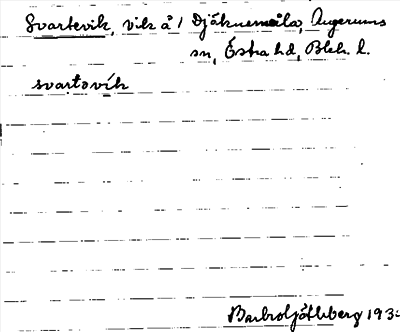 Svartevik, vik å 1 Djäknemåla, Augerums
sn, Östra hd, Blek. l.
svartəvík
Barbro 193